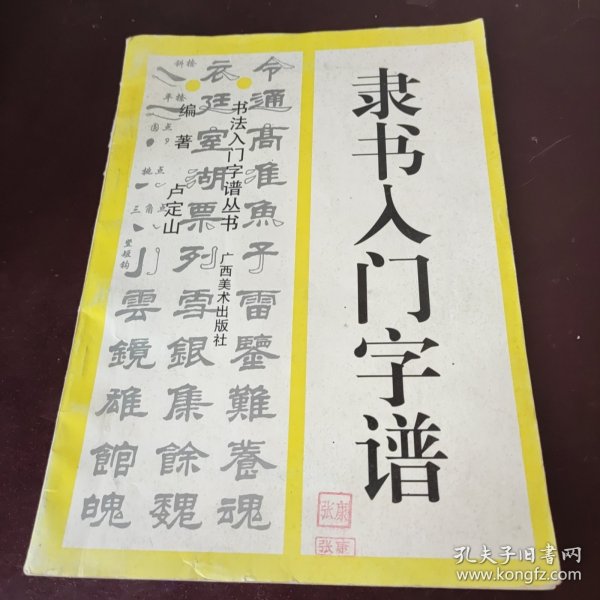 隶书入门字谱
书法入门字谱丛书
广西美术出版社
编著
卢定山
令通高淮魚子雷鑒難養魂
衣廷室湖票列雪銀集餘魏
斜捺
平捺
圆点
挑点
三角点
竖短钩
小雲鏡雄館魄
张康
孔夫子旧书网
www.kongfz.com